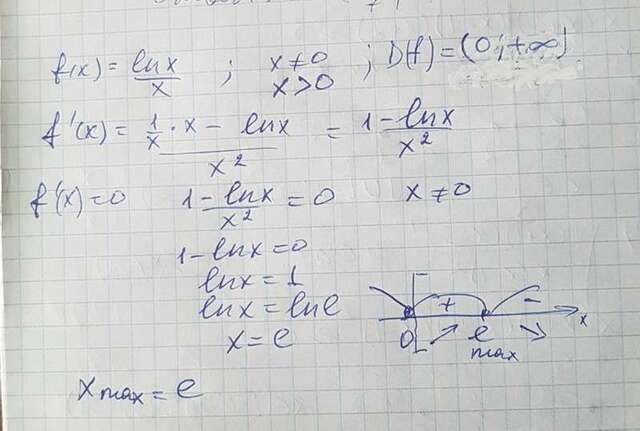 f(x) = lnx/x ; x≠0 ; D(f)=(0;+∞)
x>0
f'(x) = (1/x · x − lnx)/x² = (1−lnx)/x²
f'(x)=0 (1−lnx)/x² = 0 x≠0
1−lnx=0
lnx=1
lnx=lne
x=e
+ −
0 e x
max
x max = e